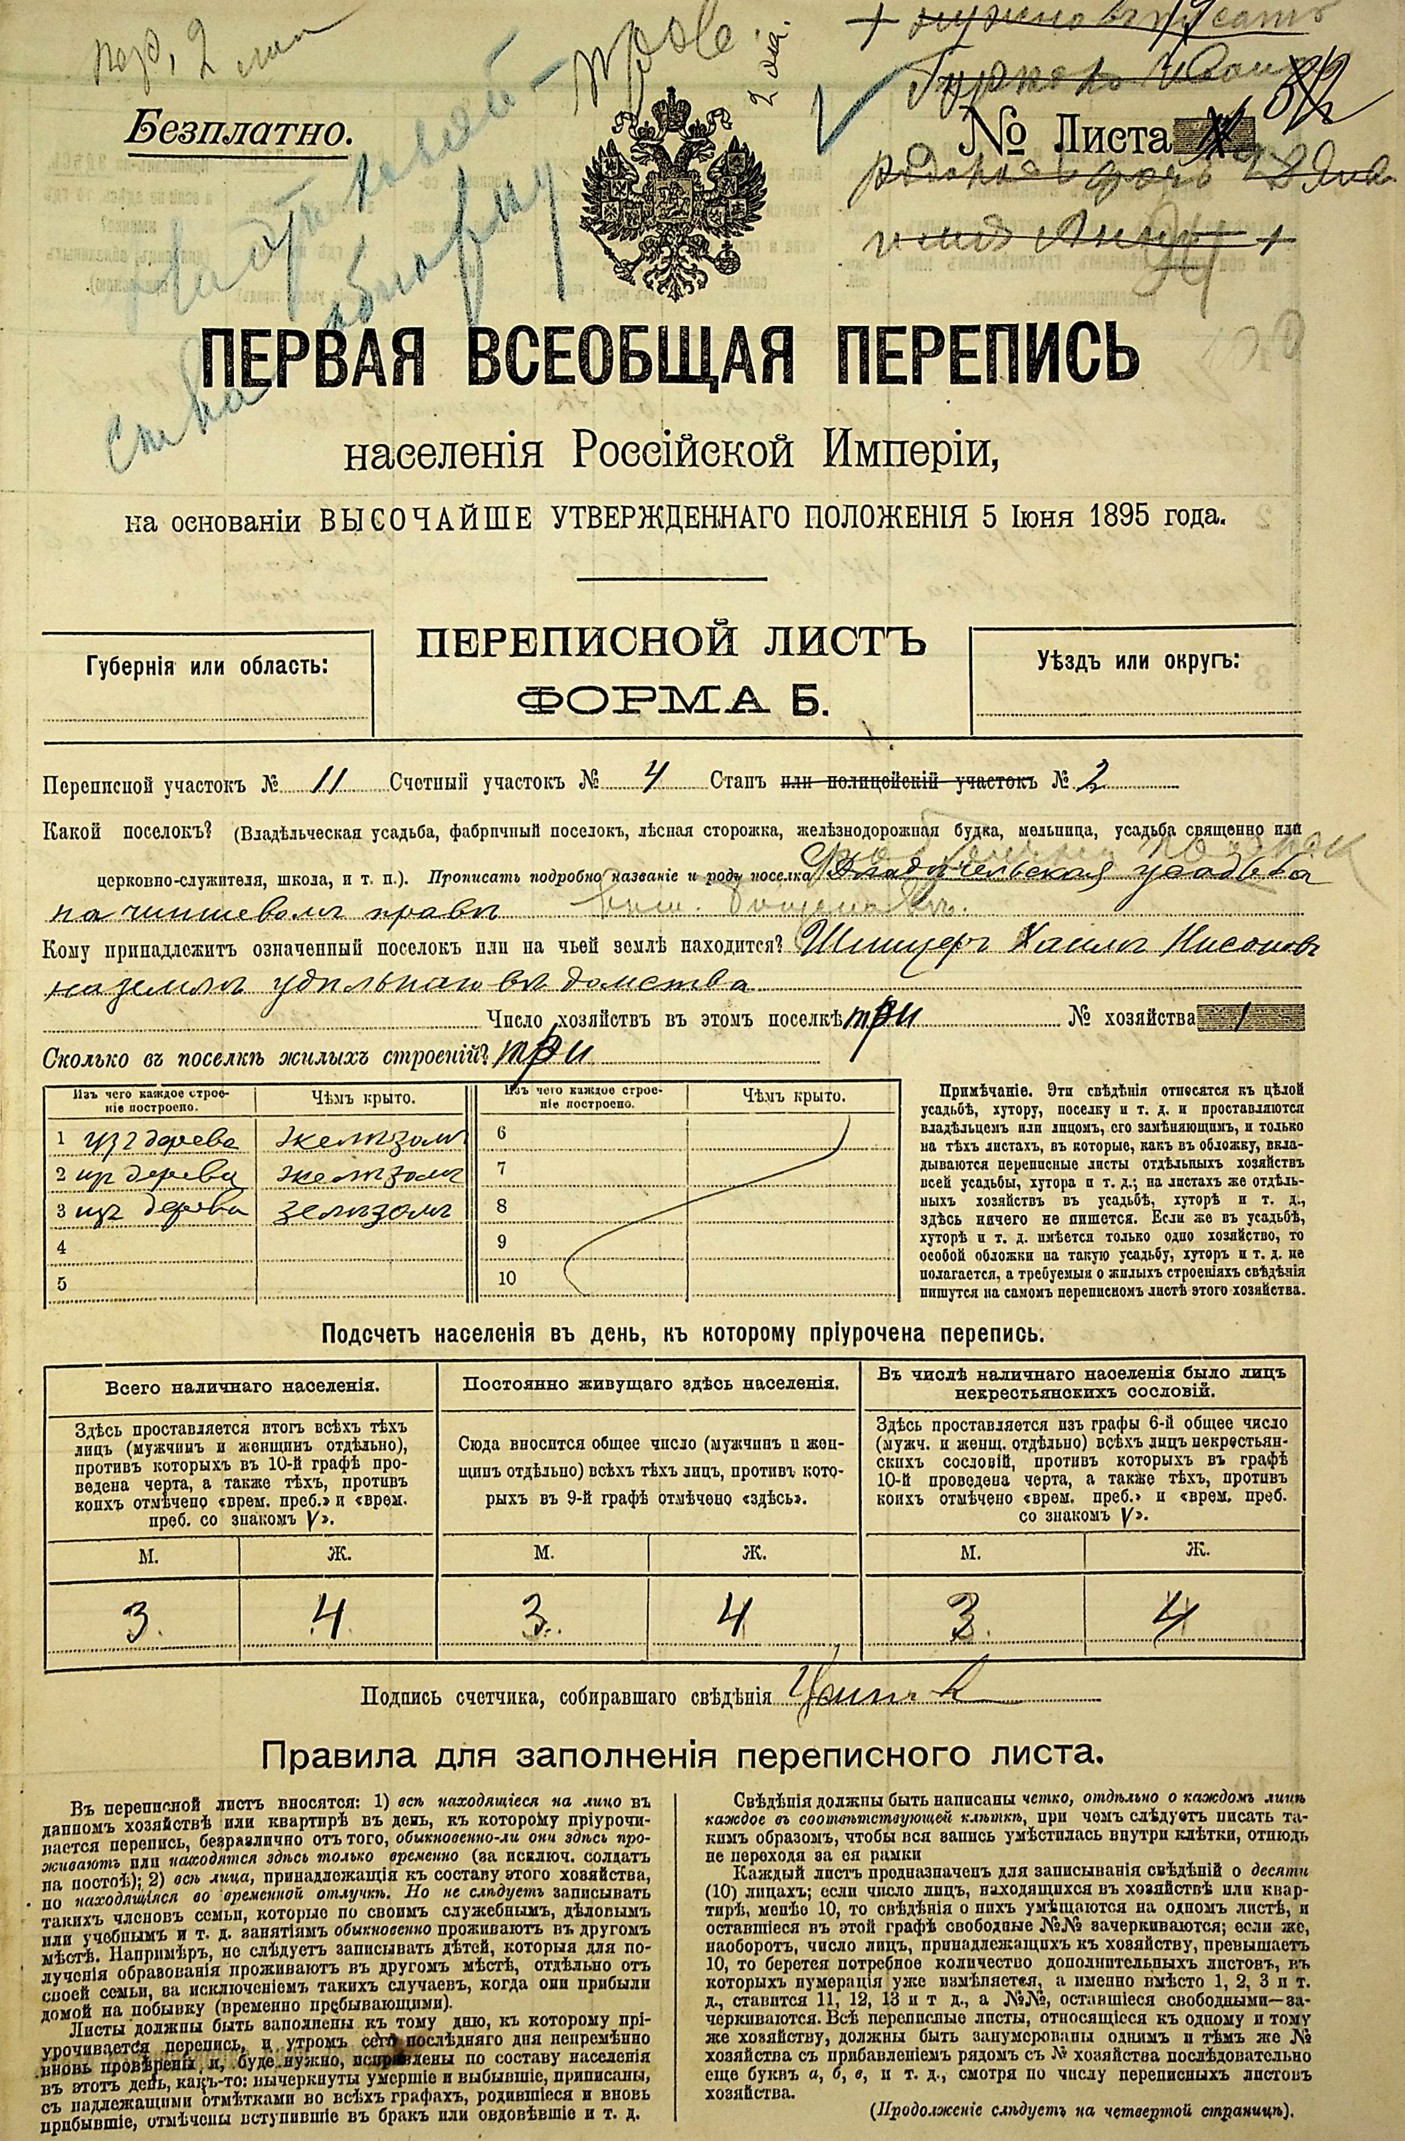 2 ли
Безплатно.
№ Листа
ПЕРВАЯ ВСЕОБЩАЯ ПЕРЕПИСЬ
населенія Россійской Имперіи,
на основаніи ВЫСОЧАЙШЕ УТВЕРЖДЕННАГО ПОЛОЖЕНІЯ 5 Іюня 1895 года.
ПЕРЕПИСНОЙ ЛИСТЪ
ФОРМА Б.
Губернія или область:
Уѣздъ или округъ:
Переписной участокъ № 11 Счетный участокъ № 4 Станъ или полицейскій участокъ № 2
Какой поселокъ? (Владѣльческая усадьба, фабричный поселокъ, лѣсная сторожка, желѣзнодорожная будка, мельница, усадьба священно или
церковно-служителя, школа, и т. п.). Прописать подробно названіе и родъ поселка Владѣчельская усадьба
на чиншевомъ правѣ
Кому принадлежитъ означенный поселокъ или на чьей землѣ находится? Шпицеръ Хаимъ Нисоновъ
на землѣ удѣльнаго вѣдомства
Число хозяйствъ въ этомъ поселкѣ три № хозяйства 1
Сколько въ поселкѣ жилыхъ строеній? три
Изъ чего каждое строе-
ніе построено.
Чѣмъ крыто.
Изъ чего каждое строе-
ніе построено.
Чѣмъ крыто.
1 изъ дерева желѣзомъ
2 изъ дерева желѣзомъ
3 изъ дерева зелѣзомъ
4
5
6
7
8
9
10
Примѣчаніе. Эти свѣдѣнія относятся къ цѣлой
усадьбѣ, хутору, поселку и т. д. и проставляются
владѣльцемъ или лицомъ, его замѣняющимъ, и только
на тѣхъ листахъ, въ которые, какъ въ обложку, вкла-
дываются переписные листы отдѣльныхъ хозяйствъ
всей усадьбы, хутора и т. д.; на листахъ же отдѣль-
ныхъ хозяйствъ въ усадьбѣ, хуторѣ и т. д.,
здѣсь ничего не пишется. Если же въ усадьбѣ,
хуторѣ и т. д. имѣется только одно хозяйство, то
особой обложки на такую усадьбу, хуторъ и т. д. не
полагается, а требуемыя о жилыхъ строеніяхъ свѣдѣнія
пишутся на самомъ переписномъ листѣ этого хозяйства.
Подсчетъ населенія въ день, къ которому пріурочена перепись.
Всего наличнаго населенія.
Здѣсь проставляется итогъ всѣхъ тѣхъ
лицъ (мужчинъ и женщинъ отдѣльно),
противъ которыхъ въ 10-й графѣ про-
ведена черта, а также тѣхъ, противъ
коихъ отмѣчено «врем. преб.» и «врем.
преб. со знакомъ V».
М. Ж.
3. 4
Постоянно живущаго здѣсь населенія.
Сюда вносится общее число (мужчинъ и жен-
щинъ отдѣльно) всѣхъ тѣхъ лицъ, противъ кото-
рыхъ въ 9-й графѣ отмѣчено «здѣсь».
М. Ж.
3. 4
Въ числѣ наличнаго населенія было лицъ
некрестьянскихъ сословій.
Здѣсь проставляется изъ графы 6-й общее число
(мужч. и женщ. отдѣльно) всѣхъ лицъ некрестьян-
скихъ сословій, противъ которыхъ въ графѣ
10-й проведена черта, а также тѣхъ, противъ
коихъ отмѣчено «врем. преб.» и «врем. преб.
со знакомъ V».
М. Ж.
3. 4
Подпись счетчика, собиравшаго свѣдѣнія
Правила для заполненія переписного листа.
Въ переписной листъ вносятся: 1) всѣ находящіеся на лицо въ
данномъ хозяйствѣ или квартирѣ въ день, къ которому пріурочи-
вается перепись, безразлично отъ того, обыкновенно-ли они здѣсь про-
живаютъ или находятся здѣсь только временно (за исключ. солдатъ
на постоѣ); 2) всѣ лица, принадлежащія къ составу этого хозяйства,
но находящіяся во временной отлучкѣ. Но не слѣдуетъ записывать
такихъ членовъ семьи, которые по своимъ служебнымъ, дѣловымъ
или учебнымъ и т. д. занятіямъ обыкновенно проживаютъ въ другомъ
мѣстѣ. Напримѣръ, не слѣдуетъ записывать дѣтей, которыя для по-
лученія образованія проживаютъ въ другомъ мѣстѣ, отдѣльно отъ
своей семьи, за исключеніемъ такихъ случаевъ, когда они прибыли
домой на побывку (временно пребывающими).
Листы должны быть заполнены къ тому дню, къ которому прі-
урочивается перепись, и утромъ сего послѣдняго дня непремѣнно
вновь провѣрены и, буде нужно, исправлены по составу населенія
въ этотъ день, какъ-то: вычеркнуты умершіе и выбывшіе, приписаны,
съ надлежащими отмѣтками во всѣхъ графахъ, родившіеся и вновь
прибывшіе, отмѣчены вступившіе въ бракъ или овдовѣвшіе и т. д.
Свѣдѣнія должны быть написаны четко, отдѣльно о каждомъ лицѣ
каждое въ соотвѣтствующей клѣткѣ, при чемъ слѣдуетъ писать та-
кимъ образомъ, чтобы вся запись умѣстилась внутри клѣтки, отнюдь
не переходя за ея рамки
Каждый листъ предназначенъ для записыванія свѣдѣній о десяти
(10) лицахъ; если число лицъ, находящихся въ хозяйствѣ или квар-
тирѣ, менѣе 10, то свѣдѣнія о нихъ умѣщаются на одномъ листѣ, и
оставшіеся въ этой графѣ свободные №№ зачеркиваются; если же,
наоборотъ, число лицъ, принадлежащихъ къ хозяйству, превышаетъ
10, то берется потребное количество дополнительныхъ листовъ, въ
которыхъ нумерація уже измѣняется, а именно вмѣсто 1, 2, 3 и т.
д., ставится 11, 12, 13 и т д., а №№, оставшіеся свободными—за-
черкиваются. Всѣ переписные листы, относящіеся къ одному и тому
же хозяйству, должны быть занумерованы однимъ и тѣмъ же №
хозяйства съ прибавленіемъ рядомъ съ № хозяйства послѣдовательно
еще буквъ а, б, в, и т. д., смотря по числу переписныхъ листовъ
хозяйства.
(Продолженіе слѣдуетъ на четвертой страницѣ).